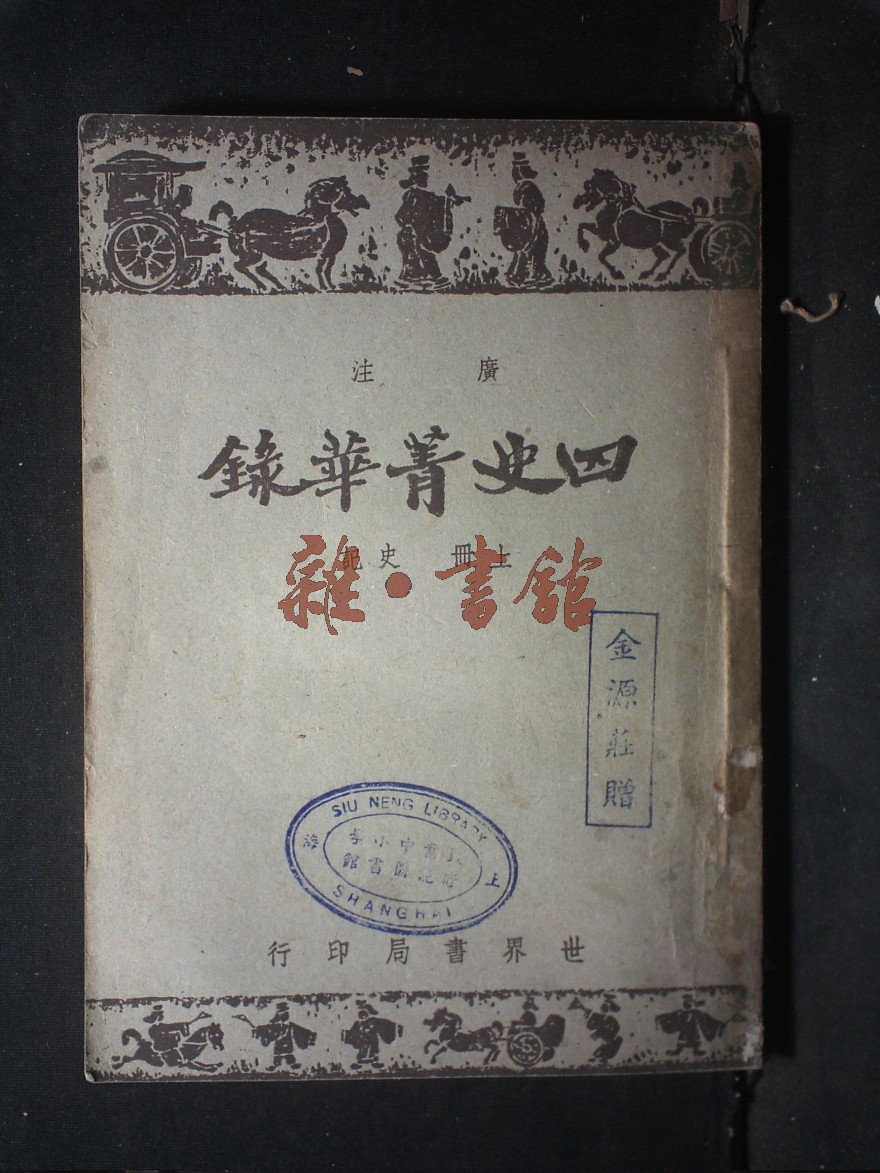 廣注
四史菁華錄
上冊 史記
雜·書館
金源莊贈
SIU NENG LIBRARY
上海
中小學
圖書館
SHANGHAI
世界書局印行